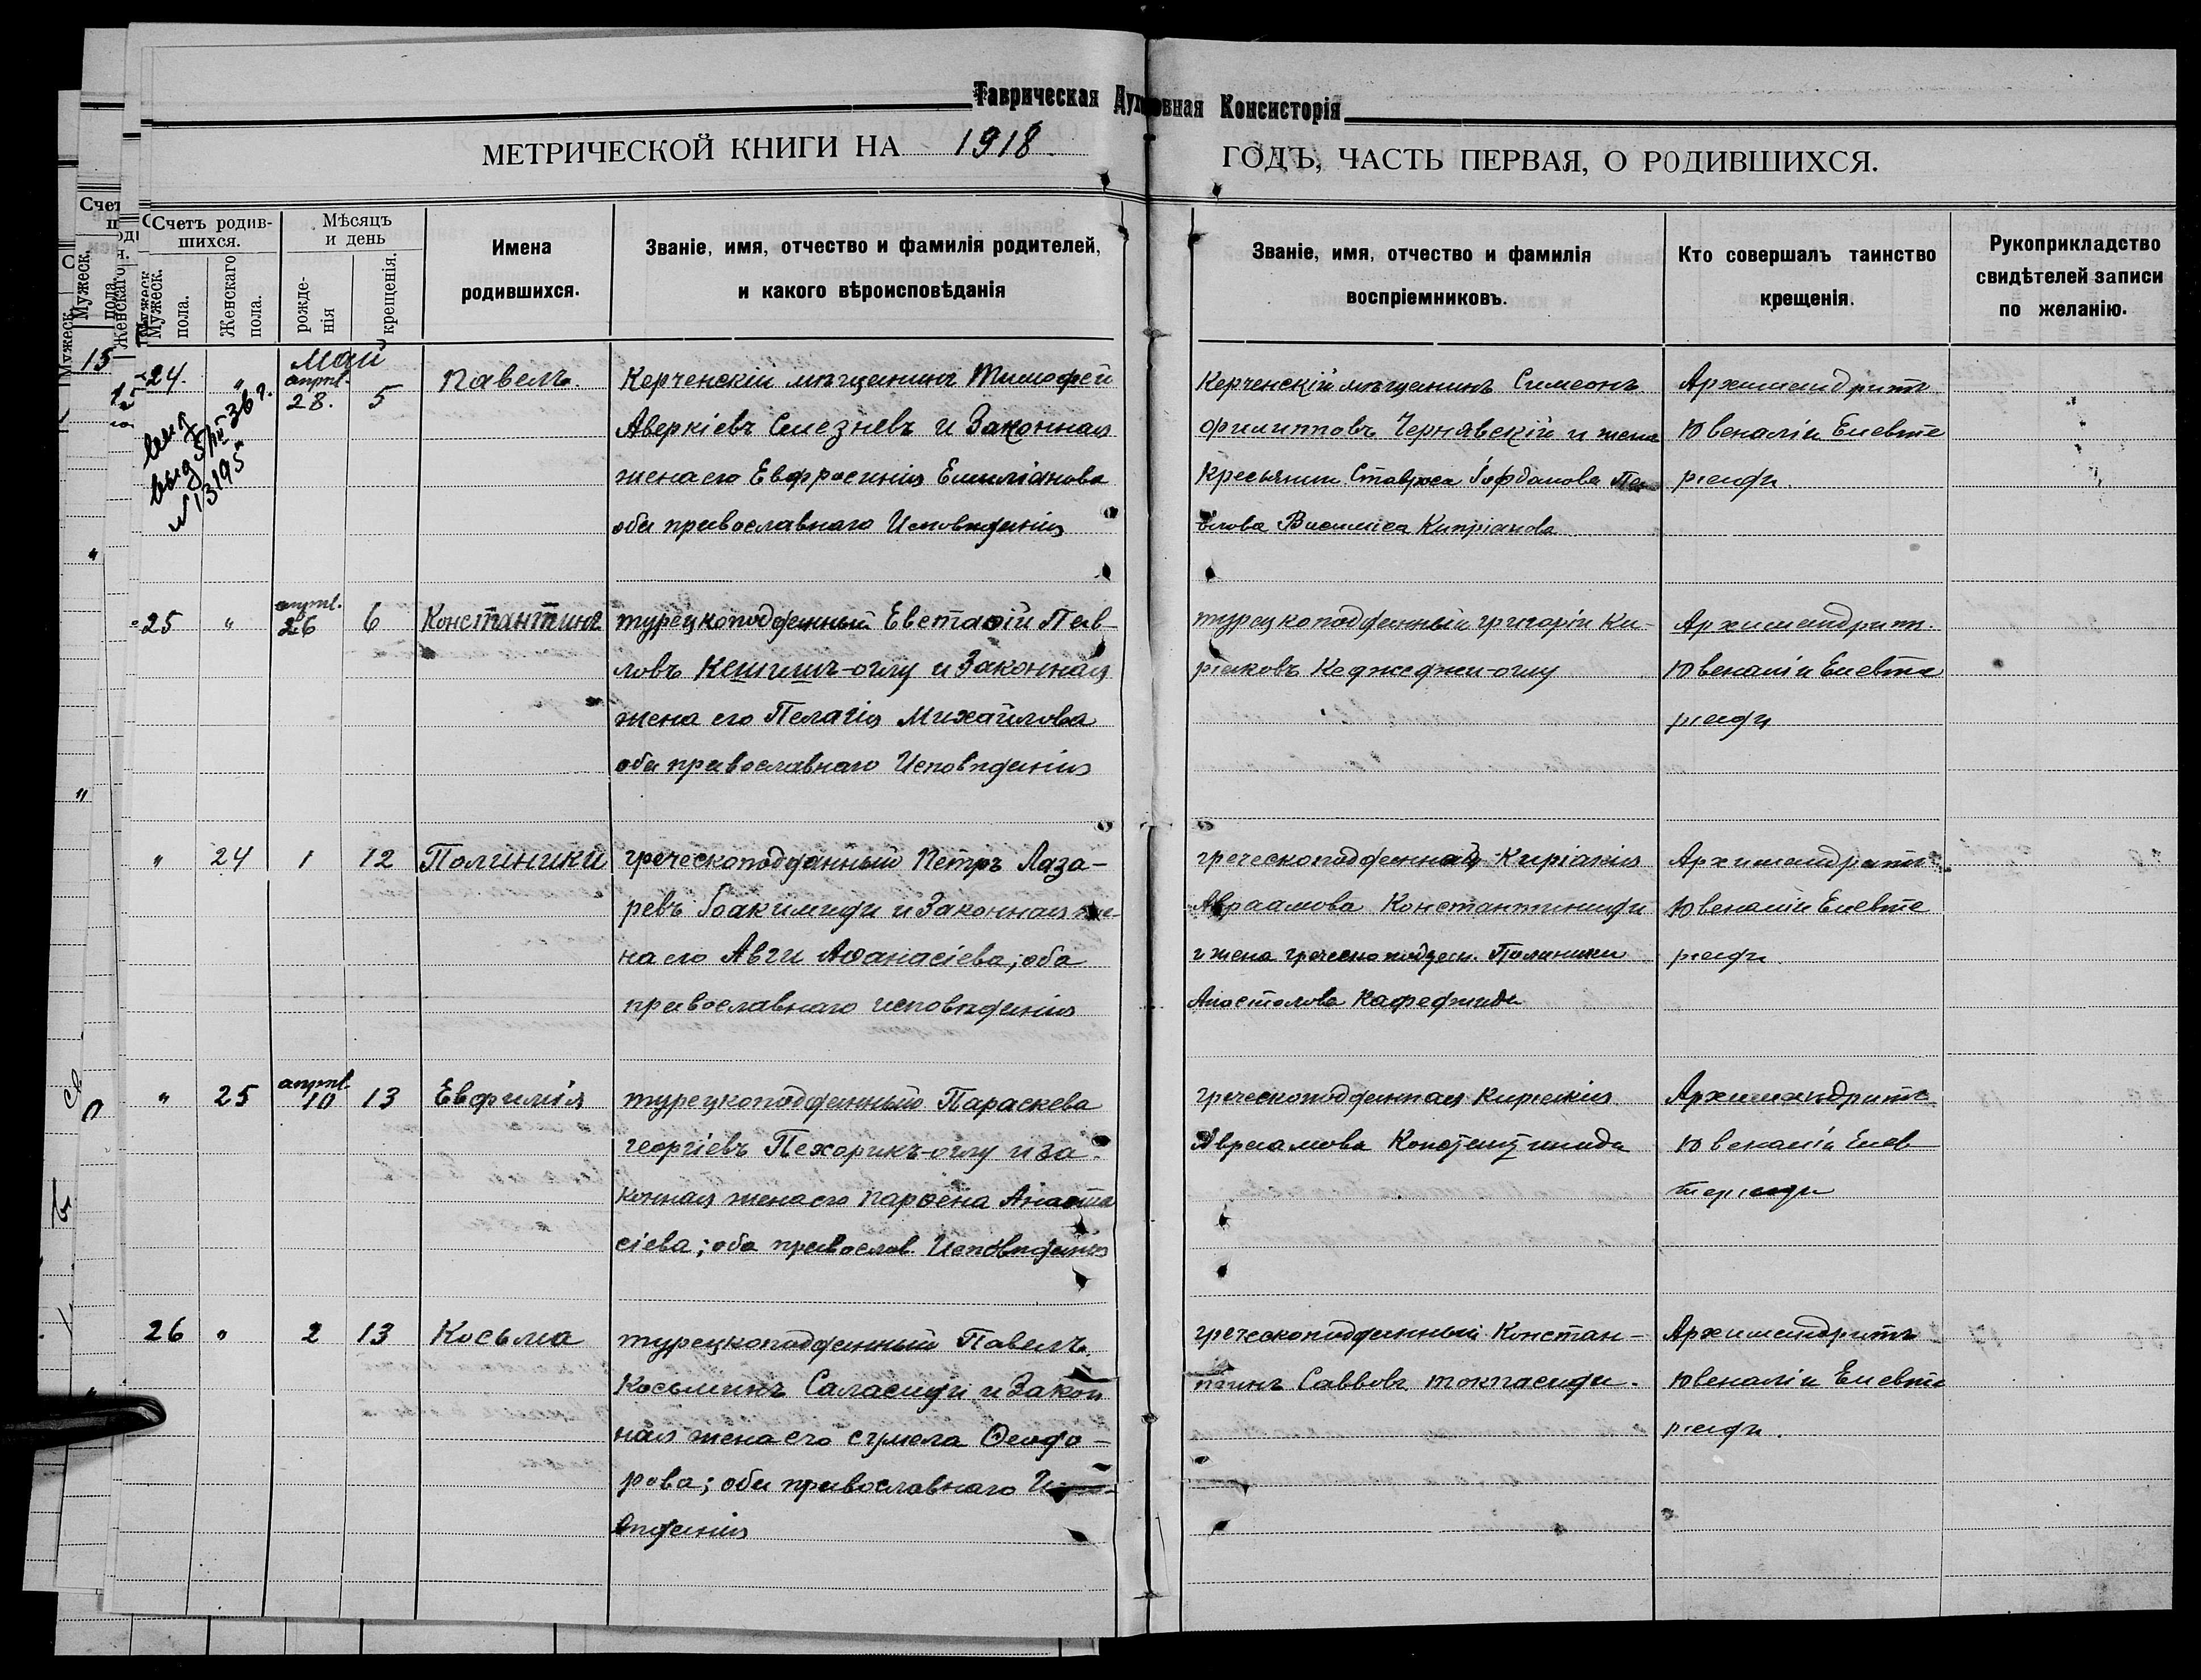 Таврическая Духовная Консисторія
МЕТРИЧЕСКОЙ КНИГИ НА 1918. ГОДЪ, ЧАСТЬ ПЕРВАЯ, О РОДИВШИХСЯ.
Счетъ родив-
шихся.
Мужеск.
пола.
Женскаго
пола.
Мѣсяцъ
и день
рожде-
нія
крещенія.
Имена
родившихся.
Званіе, имя, отчество и фамилія родителей,
и какого вѣроисповѣданія
Званіе, имя, отчество и фамилія
воспріемниковъ.
Кто совершалъ таинство
крещенія.
Рукоприкладство
свидѣтелей записи
по желанію.
май
24. " апрѣл. 28. 5
выд
36 г.
№ 13195
Павелъ.
Керченскій мѣщанинъ Тимофей
Аверкіевъ Селезневъ и Законная
жена его Евфросинія Емиліанова
оба православнаго Исповѣданія
Керченскій мѣщанинъ Симеонъ
Филипповъ Чернявскій и жена
Василиса Кипріанова
Архимандритъ
Ювеналій Елевте
ріади.
25 " апрѣл. 26 6
Константинъ
турецкоподданный Евстафій Пав-
ловъ Кешишъ-оглу и Законная
жена его Пелагія Михайлова
оба православнаго Исповѣданія
турецкоподданный григорій Ки-
ріаковъ Кеджеджи-оглу
Архимандрит.
Ювеналій Елевте
ріади
" 24 1 12
Полиники
греческоподданный Петръ Лаза-
ревъ Іоакимиди и Законная же-
на его Авги Аѳанасіева; оба
православнаго исповѣданія
греческоподданная Киріакія
Авраамова Константиниди
и жена греческоподдан. Полиники
Апостолова Кафеджиди
Архимандритъ
Ювеналій Елевте
ріади
" 25 апрѣл. 10 13
Евфимія
турецкоподданный Параскева
георгіевъ Пехорикъ-оглу и за-
конная жена его парѳена Анаста
сіева; оба православ. Исповѣданія
греческоподданная Киріакія
Авраамова Константиниди
Архимандритъ
Ювеналій Елев
теріади
26 " 2 13
Косьма
турецкоподданный Павелъ
Косьминъ Саласиди и Закон
ная жена его сумела Ѳеодо-
рова; оба православнаго Испо-
вѣданія
греческоподданный Констан-
тинъ Саввовъ токпасиди.
Архимандритъ
Ювеналій Елевте
ріади.